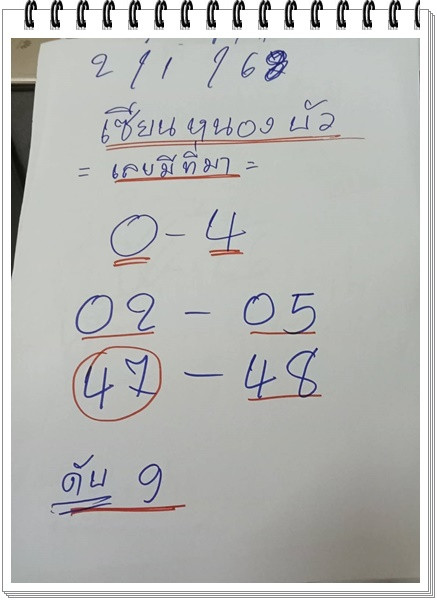 2/1/68
เซียนหนองบัว
= เลขมีที่มา =
0-4
02 - 05
47 - 48
ดับ 9